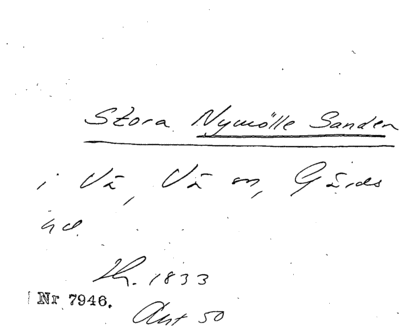 Stora Nymölle Sanden
i Vä, Vä sn, Gärds
hd.
Th. 1833
Nr 7946.
Akt 50